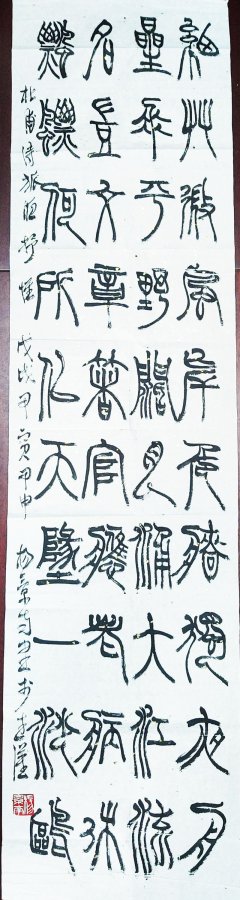 細艸微風岸危檣獨夜舟
星垂平野闊月涌大江流
名豈文章著官應老病休
飄飄何所似天墬一沙鷗
杜甫詩旅夜抒懷 戊戌甲寅甲申